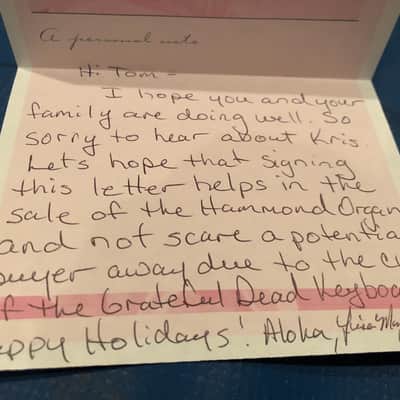 A personal note
Hi Tom -
I hope you and your
family are doing well. So
sorry to hear about Kris.
Lets hope that signing
this letter helps in the
sale of the Hammond Organ
and not scare a potentia
buyer away due to the cu
of the Grateful Dead Keyboa
appy Holidays! Aloha,